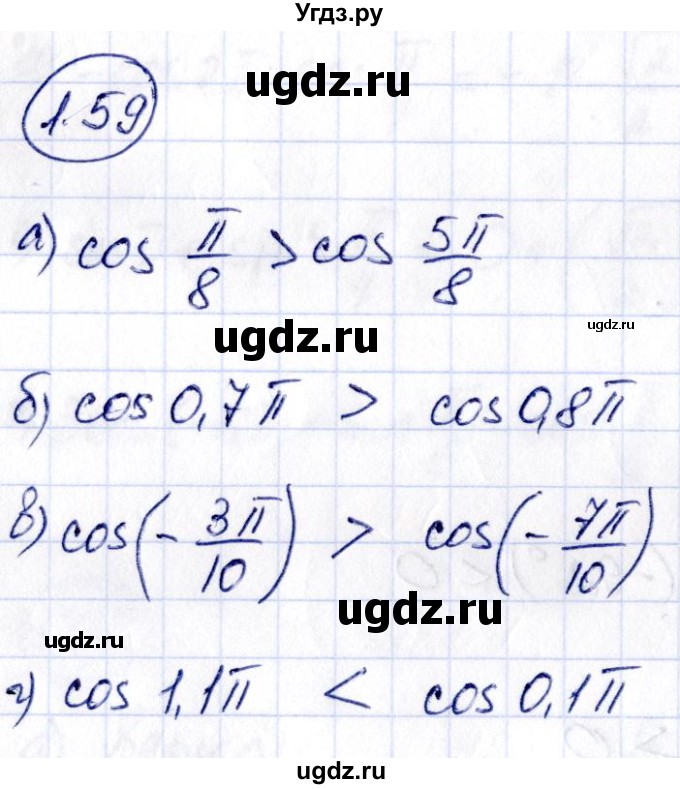 Угдз.ру
ugdz.ru
1.59
а) cos π/8 > cos 5π/8
ugdz.ru
ugdz.ru
б) cos 0,7π > cos 0,8π
в) cos(-3π/10) > cos(-7π/10)
ugdz.ru
ugdz.ru
г) cos 1,1π < cos 0,1π
ugdz.ru